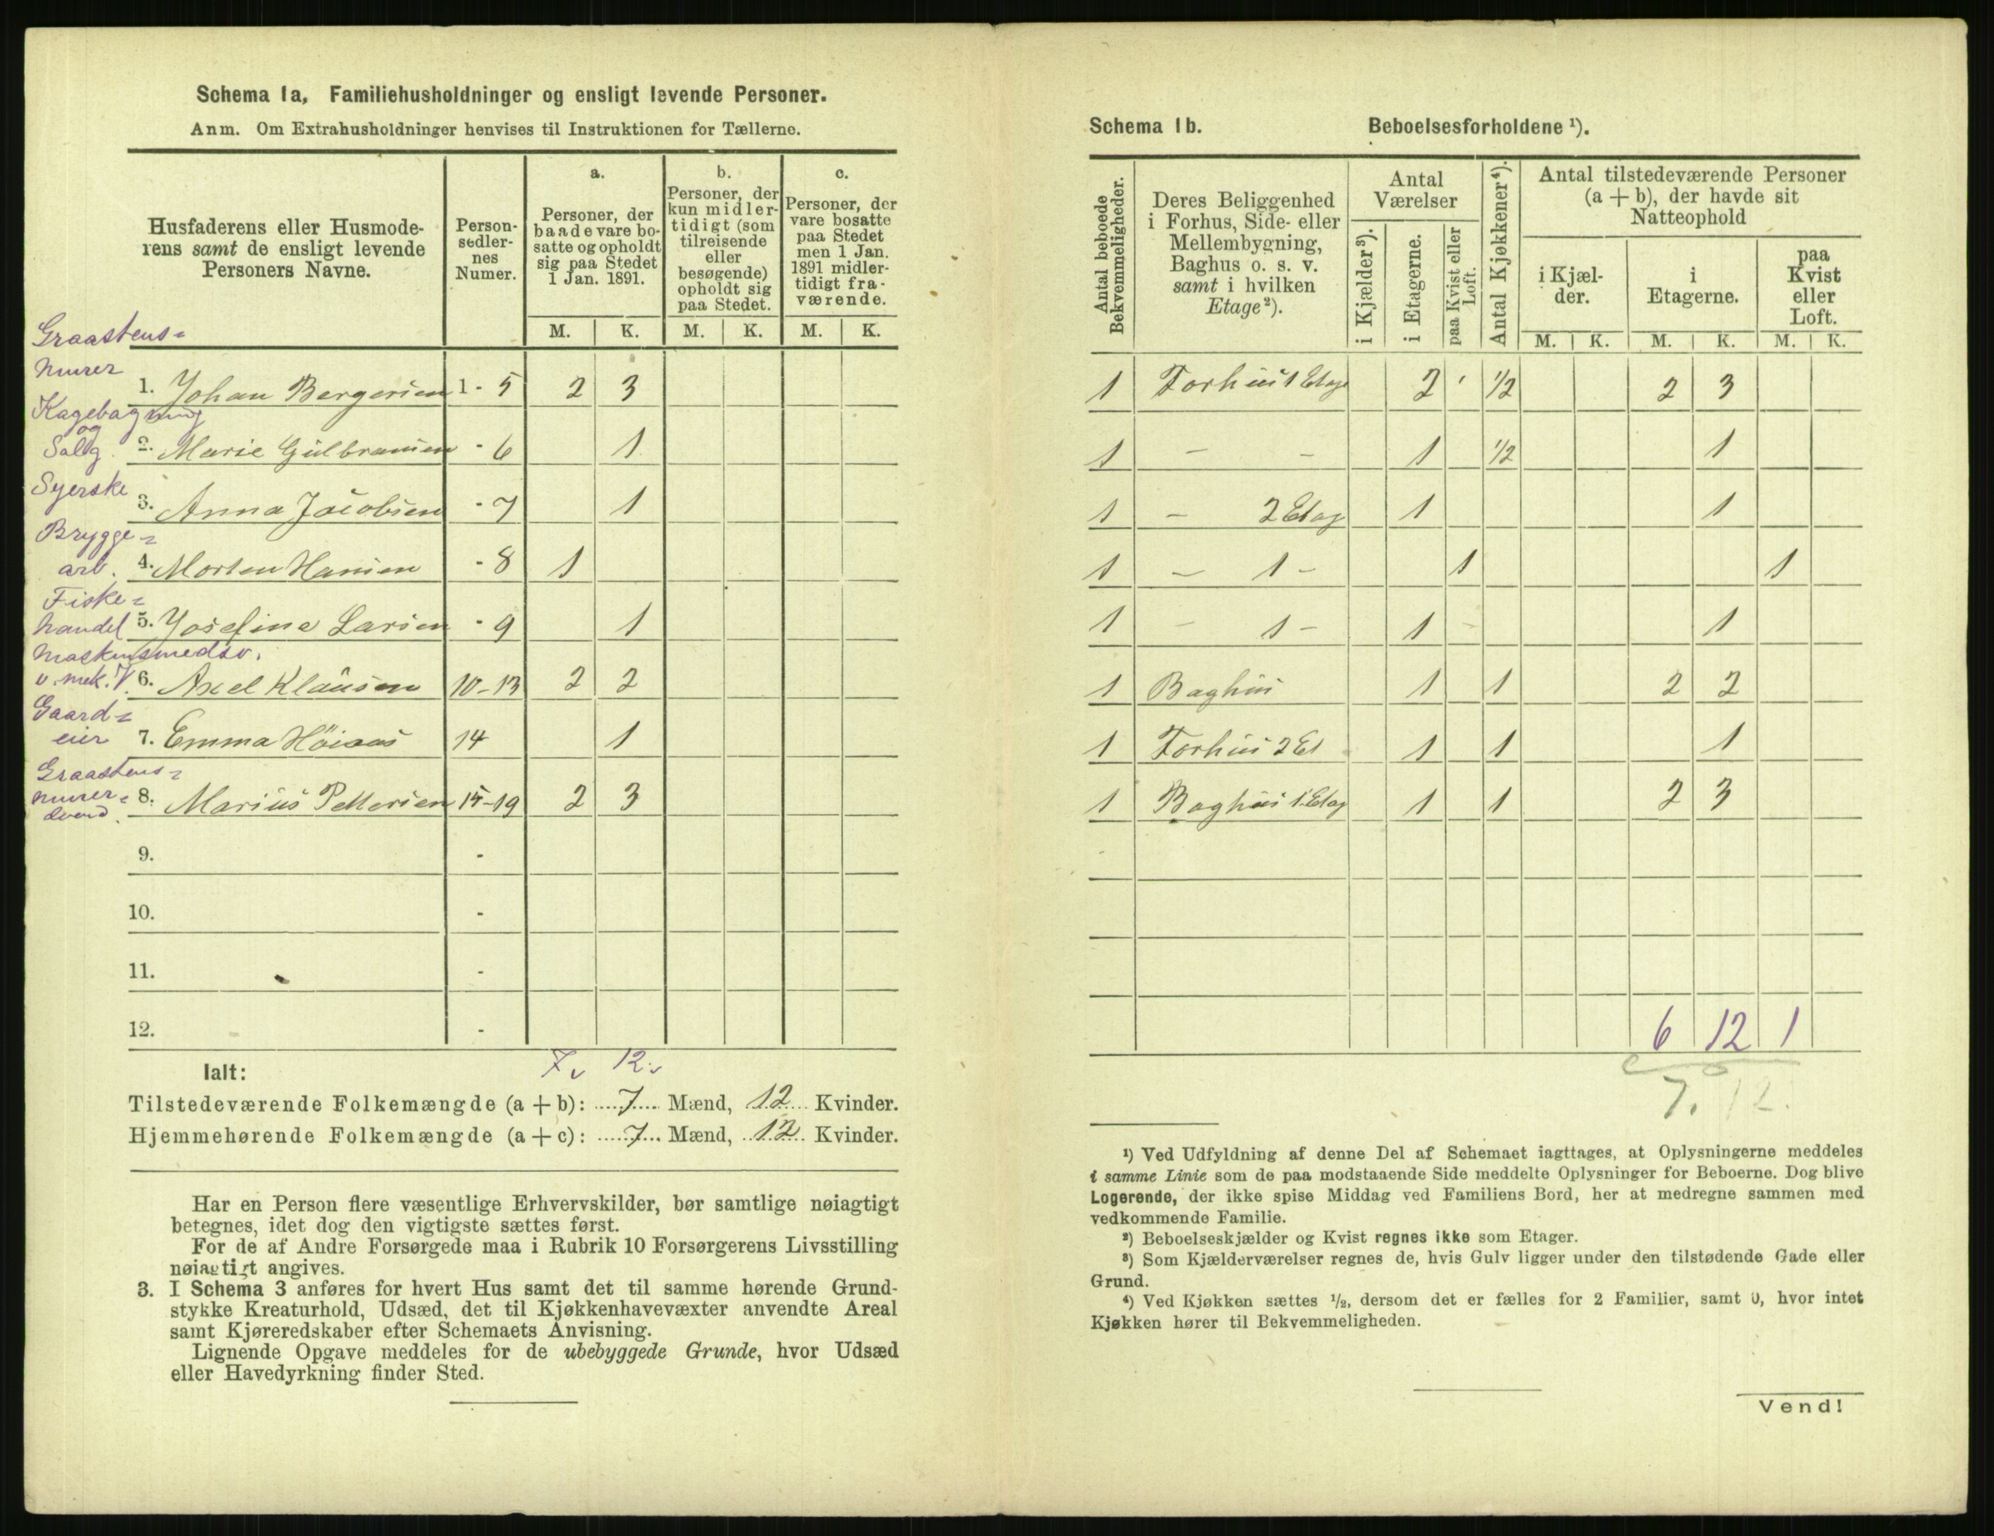 Schema 1a, Familiehusholdninger og ensligt levende Personer.
Anm. Om Extrahusholdninger henvises til Instruktionen for Tællerne.
Husfaderens eller Husmoderens samt de ensligt levende Personers Navne.
Personsedlernes Numer.
a. Personer, der baade vare bosatte og opholdt sig paa Stedet 1 Jan. 1891.
b. Personer, der kun midlertidigt (som tilreisende eller besøgende) opholdt sig paa Stedet.
c. Personer, der vare bosatte paa Stedet men 1 Jan. 1891 midlertidigt fraværende.
M. K. M. K. M. K.
Graastens=
murer
1. Johan Bergersen 1 - 5 2 3
Kagebagning
og
Salg. 2. Marie Gulbransen - 6 1
Syerske
3. Anna Jacobsen - 7 1
Brygge=
arb. 4. Morten Hansen - 8 1
Fiske=
handel 5. Josefine Larsen - 9 1
Maskinsmedsv.
v. mek. V. 6. Axel Klausen 10-13 2 2
Gaard=
eier 7. Emma Höiaas 14 1
Graastens=
murer= 8. Marius Pettersen 15-19 2 3
svend.
9. -
10. -
11. -
12. -
Ialt: 7 12
Tilstedeværende Folkemængde (a + b): 7 Mænd, 12 Kvinder.
Hjemmehørende Folkemængde (a + c): 7 Mænd, 12 Kvinder.
Har en Person flere væsentlige Erhvervskilder, bør samtlige nøiagtigt
betegnes, idet dog den vigtigste sættes først.
For de af Andre Forsørgede maa i Rubrik 10 Forsørgerens Livsstilling
nøiagtigt angives.
3. I Schema 3 anføres for hvert Hus samt det til samme hørende Grund-
stykke Kreaturhold, Udsæd, det til Kjøkkenhavevæxter anvendte Areal
samt Kjøreredskaber efter Schemaets Anvisning.
Lignende Opgave meddeles for de ubebyggede Grunde, hvor Udsæd
eller Havedyrkning finder Sted.
Schema 1b. Beboelsesforholdene ¹).
Antal beboede Bekvemmeligheder.
Deres Beliggenhed i Forhus, Side- eller Mellembygning, Baghus o. s. v. samt i hvilken Etage²).
Antal Værelser
i Kjælder³).
i Etagerne.
paa Kvist eller Loft.
Antal Kjøkkener⁴).
Antal tilstedeværende Personer (a + b), der havde sit Natteophold
i Kjælder.
i Etagerne.
paa Kvist eller Loft.
M. K. M. K. M. K.
1 Forhus 1 Etage 2 ½ 2 3
1 - - 1 ½ 1
1 - 2 Etag 1 1
1 - 1 - 1 1
1 - 1 - 1 - 1
1 Baghus 1 1 2 2
1 Forhus 2 Et 1 1 1
1 Baghus 1 Etag 1 1 2 3
6 12 1
7. 12.
¹) Ved Udfyldning af denne Del af Schemaet iagttages, at Oplysningerne meddeles
i samme Linie som de paa modstaaende Side meddelte Oplysninger for Beboerne. Dog blive
Logerende, der ikke spise Middag ved Familiens Bord, her at medregne sammen med
vedkommende Familie.
²) Beboelseskjælder og Kvist regnes ikke som Etager.
³) Som Kjælderværelser regnes de, hvis Gulv ligger under den tilstødende Gade eller
Grund.
⁴) Ved Kjøkken sættes ½, dersom det er fælles for 2 Familier, samt 0, hvor intet
Kjøkken hører til Bekvemmeligheden.
Vend!